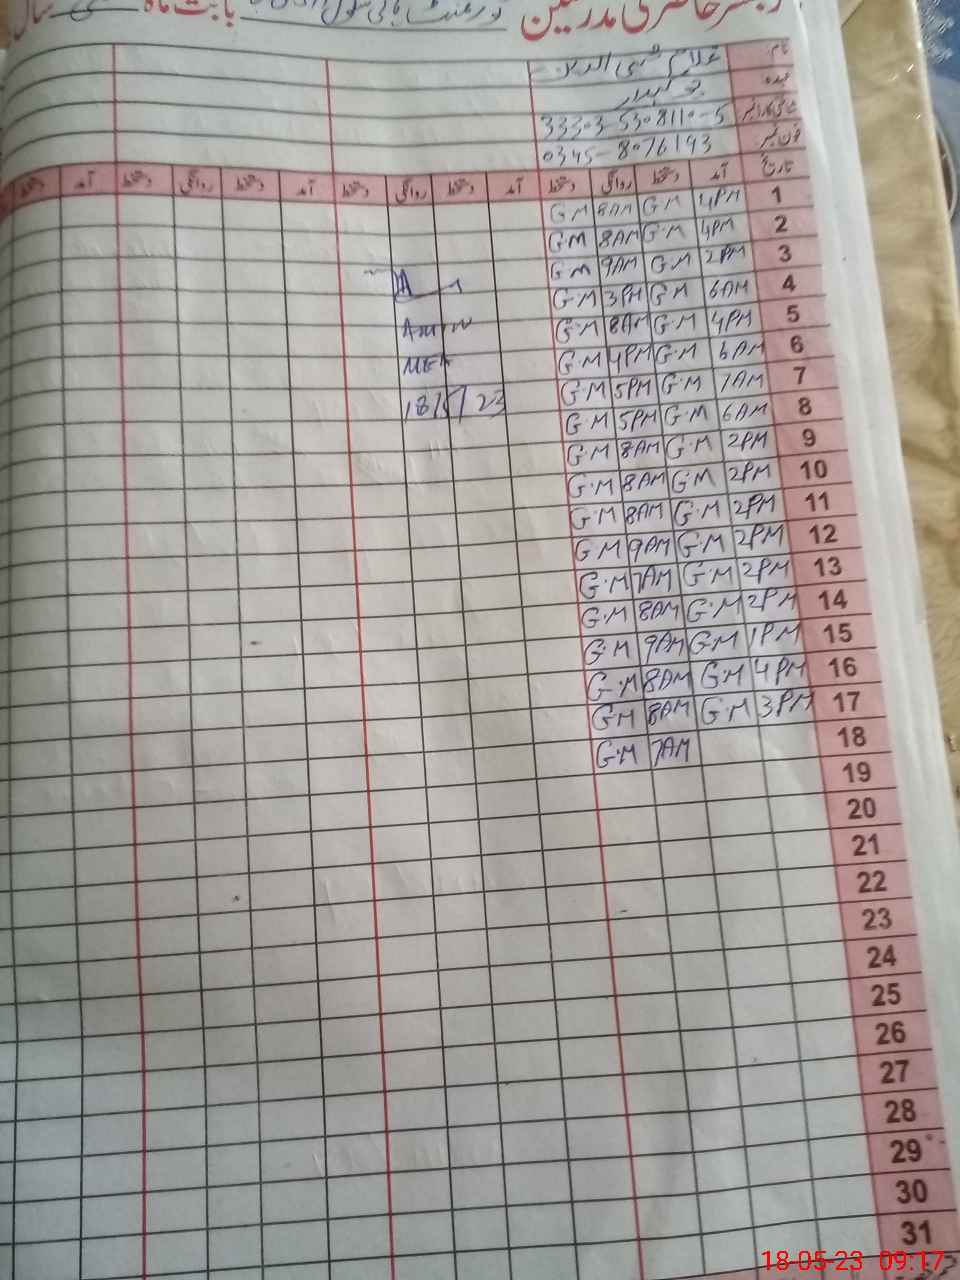 رجسٹر حاضری مدرسین گورنمنٹ ہائی سکول بابت ماہ مئی سال
نام غلام
عہدہ چوکیدار
شناختی کارڈ نمبر 33303-5308110-5
فون نمبر 0345-8076193
تاریخ آمد دستخط روانگی دستخط آمد دستخط روانگی دستخط آمد دستخط روانگی دستخط آمد
1 4PM G.M 8AM G.M
2 4PM G.M 8AM G.M
3 2PM G.M 9AM G.M
4 6AM G.M 3PM G.M
5 4PM G.M 8AM G.M Amin
6 6AM G.M 4PM G.M MEA
7 7AM G.M 5PM G.M 18/5/23
8 6AM G.M 5PM G.M
9 2PM G.M 8AM G.M
10 2PM G.M 8AM G.M
11 2PM G.M 8AM G.M
12 2PM G.M 9AM G.M
13 2PM G.M 7AM G.M
14 2PM G.M 8AM G.M
15 1PM G.M 9AM G.M
16 4PM G.M 8AM G.M
17 3PM G.M 8AM G.M
18 7AM G.M
19
20
21
22
23
24
25
26
27
28
29
30
31
18-05-23 09:17